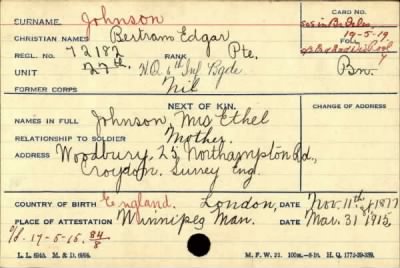 SURNAME. Johnson CARD NO.
CHRISTIAN NAMES Bertram Edgar
19-5-19
REGL. NO. 72182 RANK Pte. FOLL.
UNIT 27th. H.Q. 6th Inf Bgde Bn.
FORMER CORPS Nil
NEXT OF KIN. CHANGE OF ADDRESS
NAMES IN FULL Johnson, Mrs Ethel
RELATIONSHIP TO SOLDIER Mother.
ADDRESS Woodbury, 25 Northampton Rd.,
Croydon. Surrey Eng.
COUNTRY OF BIRTH England. London, DATE Nov. 11th 1877
PLACE OF ATTESTATION Winnipeg Man. DATE Mar. 31 1915
17-5-15. 84/8
L. L. 694A. M. & D. M. F. W. 22. H.Q. 1772-39-339.